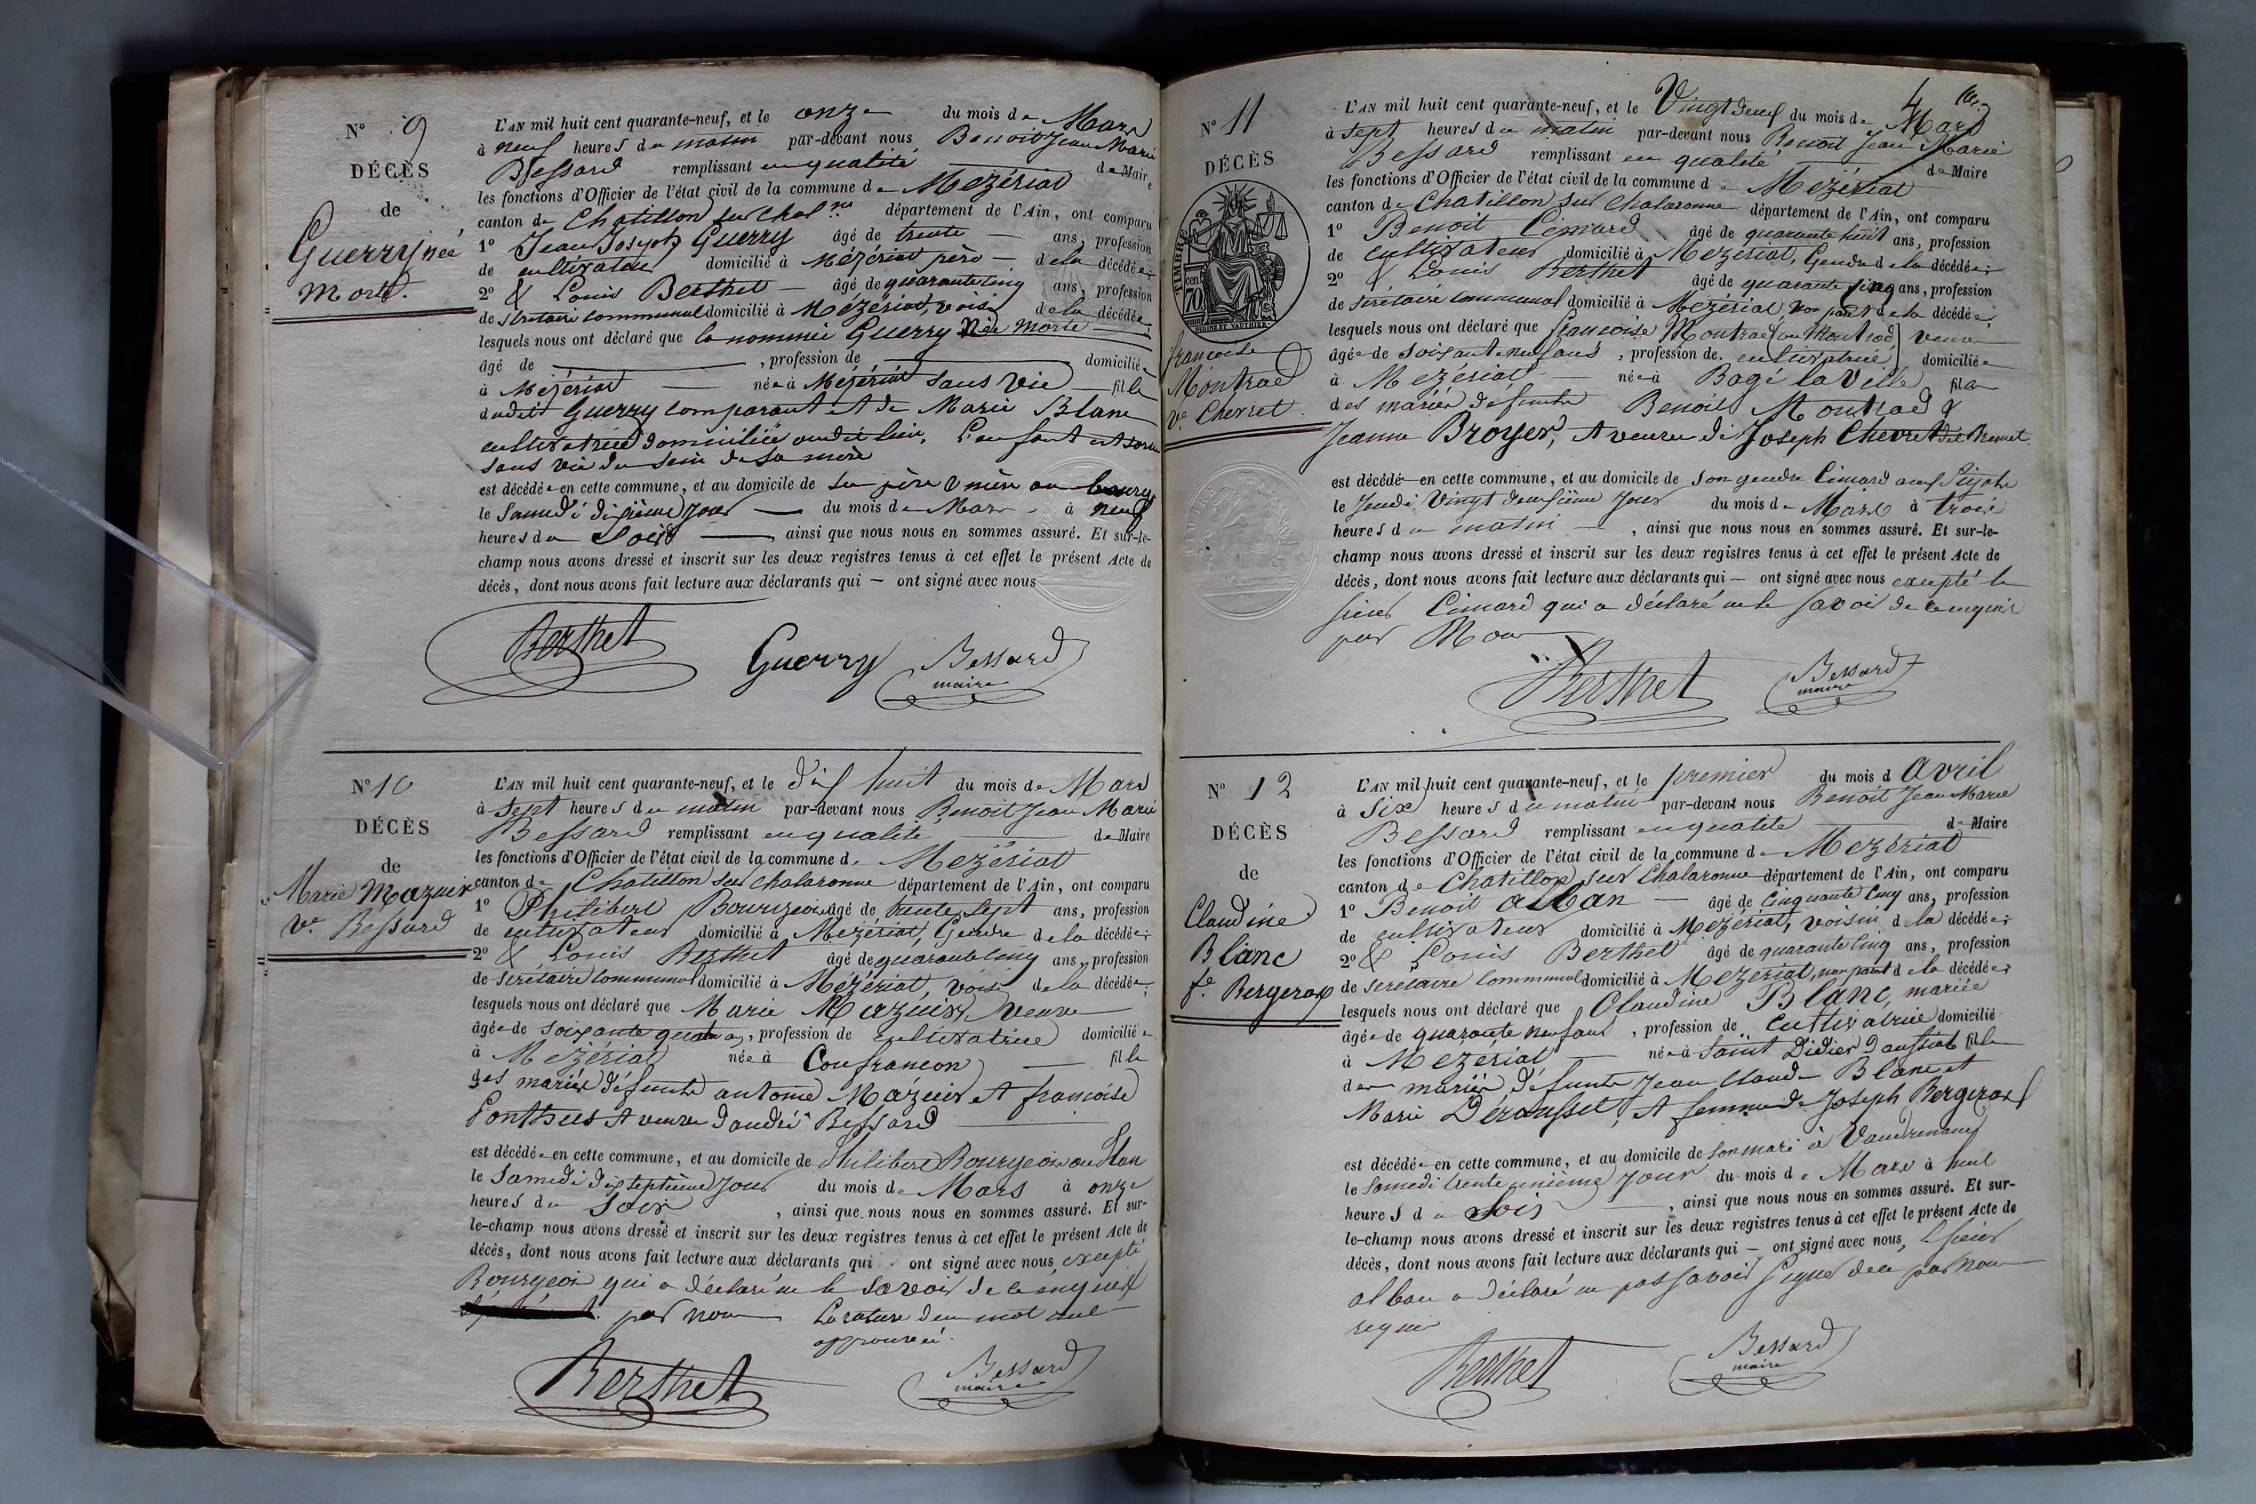 N° 9
DÉCÈS
de
Guerry née
Morte.
L'AN mil huit cent quarante-neuf, et le onze du mois de Mars
à neuf heures du matin par-devant nous Benoit Jean Marie
Bessard remplissant en qualité de Maire
les fonctions d'Officier de l'état civil de la commune de Mézériat
canton de Chatillon sur Chal.ne département de l'Ain, ont comparu
1° Jean Joseph Guerry âgé de trente ans, profession
de cultivateur domicilié à Mézériat père de la décédée;
2° & Louis Berthet âgé de quarante cinq ans, profession
de secrétaire communal domicilié à Mézériat, voisin de la décédée;
lesquels nous ont déclaré que la nommée Guerry Née Morte
âgé de , profession de domiciliée
à Mézériat née à Mézériat sans vie fille
dudit Guerry comparant et de Marie Blanc
cultivatrice domiciliée audit lieu. L'enfant est sorti
sans vie du sein de sa mère
est décédée en cette commune, et au domicile de ses père & mère au bourg
le Samedi dixième jour du mois de Mars à neuf
heures du Soir ainsi que nous nous en sommes assuré. Et sur-le-
champ nous avons dressé et inscrit sur les deux registres tenus à cet effet le présent Acte de
décès, dont nous avons fait lecture aux déclarants qui ont signé avec nous
Berthet Guerry Bessard
maire
N° 10
DÉCÈS
de
Marie Mazuir
Ve. Bessard
L'AN mil huit cent quarante-neuf, et le dix huit du mois de Mars
à sept heures du matin par-devant nous Benoit Jean Marie
Bessard remplissant en qualité de Maire
les fonctions d'Officier de l'état civil de la commune de Mézériat
canton de Chatillon sur Chalaronne département de l'Ain, ont comparu
1° Philibert Bourgeois âgé de trente sept ans, profession
de cultivateur domicilié à Mézériat, Gendre de la décédée;
2° & Louis Berthet âgé de quarante cinq ans, profession
de secrétaire communal domicilié à Mézériat, voisin de la décédée;
lesquels nous ont déclaré que Marie Mazuir, Veuve
âgée de soixante quatre ans, profession de cultivatrice domiciliée
à Mézériat née à Confrancon fille
des mariés défunts antoine Mazuir et françoise
Ponthus et veuve d'andré Bessard
est décédée en cette commune, et au domicile de Philibert Bourgeois au
le Samedi dix septième jour du mois de Mars à onze
heures du Soir, ainsi que nous nous en sommes assuré. Et sur-
le-champ nous avons dressé et inscrit sur les deux registres tenus à cet effet le présent Acte de
décès, dont nous avons fait lecture aux déclarants qui ont signé avec nous, excepté
Bourgeois qui a déclaré ne le savoir de ce enquis
par nous La rature d'un mot nul
approuvée.
Berthet Bessard
maire
4
N° 11
DÉCÈS
TIMBRE
70 cen
françoise
Montrad
Ve. Chevret
L'AN mil huit cent quarante-neuf, et le Vingt deux du mois de Mars
à sept heures du matin par-devant nous Benoit Jean Marie
Bessard remplissant en qualité de Maire
les fonctions d'Officier de l'état civil de la commune de Mézériat
canton de Chatillon sur Chalaronne département de l'Ain, ont comparu
1° Benoit Cimard âgé de quarante huit ans, profession
de cultivateur domicilié à Mézériat, Gendre de la décédée;
2° & Louis Berthet âgé de quarante cinq ans, profession
de secrétaire communal domicilié à Mézériat, non parent de la décédée;
lesquels nous ont déclaré que françoise Montrad (ou Montrod) veuve
âgée de soixante neuf ans, profession de cultivatrice domiciliée
à Mézériat née à Bagé la Ville fille
des mariés défunts Benoit Montrad &
Jeanne Broyer, et veuve de Joseph Chevret dit
est décédé en cette commune, et au domicile de son gendre Cimard
le Jeudi Vingt deuxième jour du mois de Mars à trois
heures du matin, ainsi que nous nous en sommes assuré. Et sur-le-
champ nous avons dressé et inscrit sur les deux registres tenus à cet effet le présent Acte de
décès, dont nous avons fait lecture aux déclarants qui ont signé avec nous excepté le
sieur Cimard qui a déclaré ne le savoir de ce enquis
par Nous
Berthet Bessard
maire
N° 12
DÉCÈS
de
Claudine
Blanc
fe. Bergeron
L'AN mil huit cent quarante-neuf, et le premier du mois d avril
à Six heures du matin par-devant nous Benoit Jean Marie
Bessard remplissant en qualité de Maire
les fonctions d'Officier de l'état civil de la commune de Mézériat
canton de Chatillon sur Chalaronne département de l'Ain, ont comparu
1° Benoit alban âgé de Cinquante Cinq ans, profession
de cultivateur domicilié à Mézériat, voisin de la décédée;
2° & Louis Berthet âgé de quarante cinq ans, profession
de secrétaire communal domicilié à Mézériat, non parent de la décédée;
lesquels nous ont déclaré que Claudine Blanc, mariée
âgée de quarante neuf ans, profession de cultivatrice domicilié
à Mézériat née à Saint Didier d'aussiat fille
des mariés défunts Jean Claude Blanc et
Marie Dérousset, et femme de Joseph
est décédée en cette commune, et au domicile de son mari à
le Samedi trente unième jour du mois de Mars à huit
heures du Soir, ainsi que nous nous en sommes assuré. Et sur-
le-champ nous avons dressé et inscrit sur les deux registres tenus à cet effet le présent Acte de
décès, dont nous avons fait lecture aux déclarants qui ont signé avec nous, l sieur
alban a déclaré ne pas savoir signer de ce par nous
requis
Berthet Bessard
maire